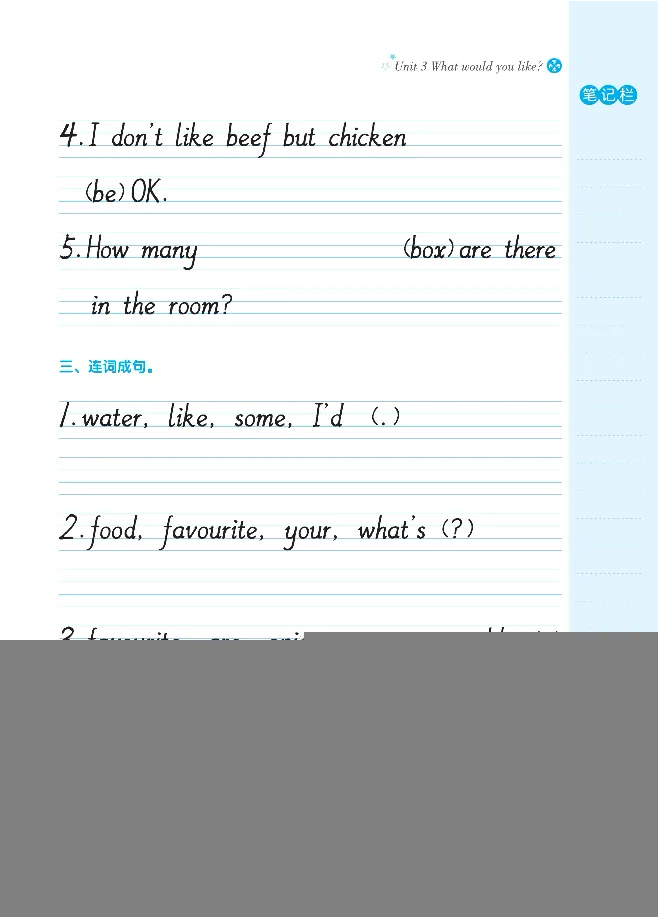 Unit 3 What would you like?
笔记栏
4. I don't like beef but chicken
(be) OK.
5. How many (box) are there
in the room?
三、连词成句。
1. water, like, some, I'd (.)
2. food, favourite, your, what's (?)
3. favourite